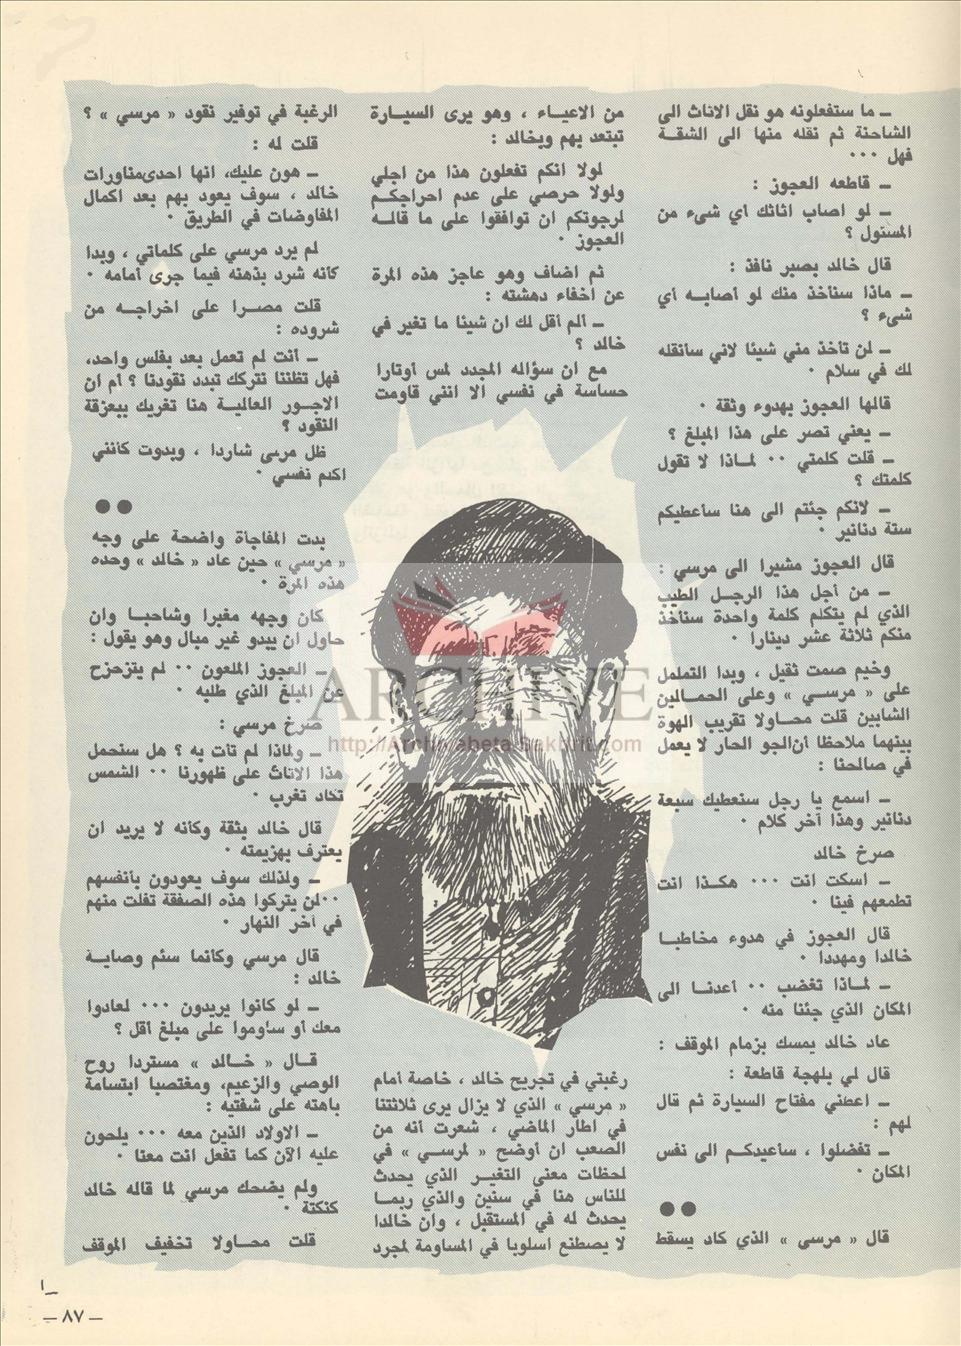 ــ ما ستفعلونه هو نقل الاثاث الى
الشاحنة ثم نقله منها الى الشقة
فهل ٠٠٠
ــ قاطعه العجوز :
ــ لو اصاب اثاثك أي شىء من
المسئول ؟
قال خالد بصبر نافذ :
ــ ماذا سنأخذ منك لو أصابه أي
شىء ؟
ــ لن تأخذ مني شيئا لاني سأنقله
لك في سلام ٠
قالها العجوز بهدوء وثقة ٠
ــ يعني تصر على هذا المبلغ ؟
ــ قلت كلمتي ٠٠ لماذا لا تقول
كلمتك ؟
ــ لانكم جئتم الى هنا سأعطيكم
ستة دنانير ٠
قال العجوز مشيرا الى مرسي :
ــ من أجل هذا الرجل الطيب
الذي لم يتكلم كلمة واحدة سنأخذ
منكم ثلاثة عشر دينارا ٠
وخيم صمت ثقيل ، وبدا التململ
على « مرسي » وعلى الحمالين
الشابين قلت محاولا تقريب الهوة
بينهما ملاحظا أن الجو الحار لا يعمل
في صالحنا :
ــ اسمع يا رجل سنعطيك سبعة
دنانير وهذا آخر كلام ٠
صرخ خالد
ــ أسكت انت ٠٠٠ هكذا انت
تطمعهم فينا ٠
قال العجوز في هدوء مخاطبا
خالدا ومهددا ٠
ــ لماذا تغضب ٠٠ أعدنا الى
المكان الذي جئنا منه ٠
عاد خالد يمسك بزمام الموقف :
قال لي بلهجة قاطعة :
ــ اعطني مفتاح السيارة ثم قال
لهم :
ــ تفضلوا ، سأعيدكم الى نفس
المكان ٠
●●
قال « مرسى » الذي كاد يسقط
من الاعياء ، وهو يرى السيارة
تبتعد بهم وبخالد :
لولا انكم تفعلون هذا من اجلي
ولولا حرصي على عدم احراجكم
لرجوتكم ان توافقوا على ما قاله
العجوز ٠
ثم اضاف وهو عاجز هذه المرة
عن اخفاء دهشته :
ــ ألم أقل لك ان شيئا ما تغير في
خالد ؟
مع ان سؤاله المجدد لمس أوتارا
حساسة في نفسي الا انني قاومت
رغبتي في تجريح خالد ، خاصة أمام
« مرسي » الذي لا يزال يرى ثلاثتنا
في اطار الماضي ، شعرت أنه من
الصعب ان أوضح « لمرسي » في
لحظات معنى التغير الذي يحدث
للناس هنا في سنين والذي ربما
يحدث له في المستقبل ، وان خالدا
لا يصطنع اسلوبا في المساومة لمجرد
الرغبة في توفير نقود « مرسي » ؟
قلت له :
ــ هون عليك، انها احدى مناورات
خالد ، سوف يعود بهم بعد اكمال
المفاوضات في الطريق ٠
لم يرد مرسي على كلماتي ، وبدا
كأنه شرد بذهنه فيما جرى أمامه ٠
قلت مصرا على اخراجه من
شروده :
ــ أنت لم تعمل بعد بفلس واحد،
فهل تظننا نتركك تبدد نقودنا ؟ أم ان
الاجور العالية هنا تغريك ببعزقة
النقود ؟
ظل مرسى شاردا ، وبدوت كأنني
اكلم نفسي ٠
●●
بدت المفاجأة واضحة على وجه
« مرسي » حين عاد « خالد » وحده
هذه المرة ٠
كان وجهه مغبرا وشاحبا وان
حاول ان يبدو غير مبال وهو يقول :
ــ العجوز الملعون ٠٠ لم يتزحزح
عن المبلغ الذي طلبه ٠
صرخ مرسي :
ــ ولماذا لم تأت به ؟ هل سنحمل
هذا الاثاث على ظهورنا ٠٠ الشمس
تكاد تغرب ٠
قال خالد بثقة وكانه لا يريد ان
يعترف بهزيمته ٠
ــ ولذلك سوف يعودون بأنفسهم
٠٠ لن يتركوا هذه الصفقة تفلت منهم
في آخر النهار ٠
قال مرسي وكأنما سئم وصاية
خالد :
ــ لو كانوا يريدون ٠٠٠ لعادوا
معك أو ساوموا على مبلغ أقل ؟
قال « خالد » مستردا روح
الوصي والزعيم، ومغتصبا ابتسامة
باهته على شفتيه :
ــ الاولاد الذين معه ٠٠٠ يلحون
عليه الآن كما تفعل انت معنا ٠
ولم يضحك مرسي لما قاله خالد
كنكتة ٠
قلت محاولا تخفيف الموقف
ARCHIVE
http://Archivebeta.Sakhrit.com
ــ ٨٧ ــ